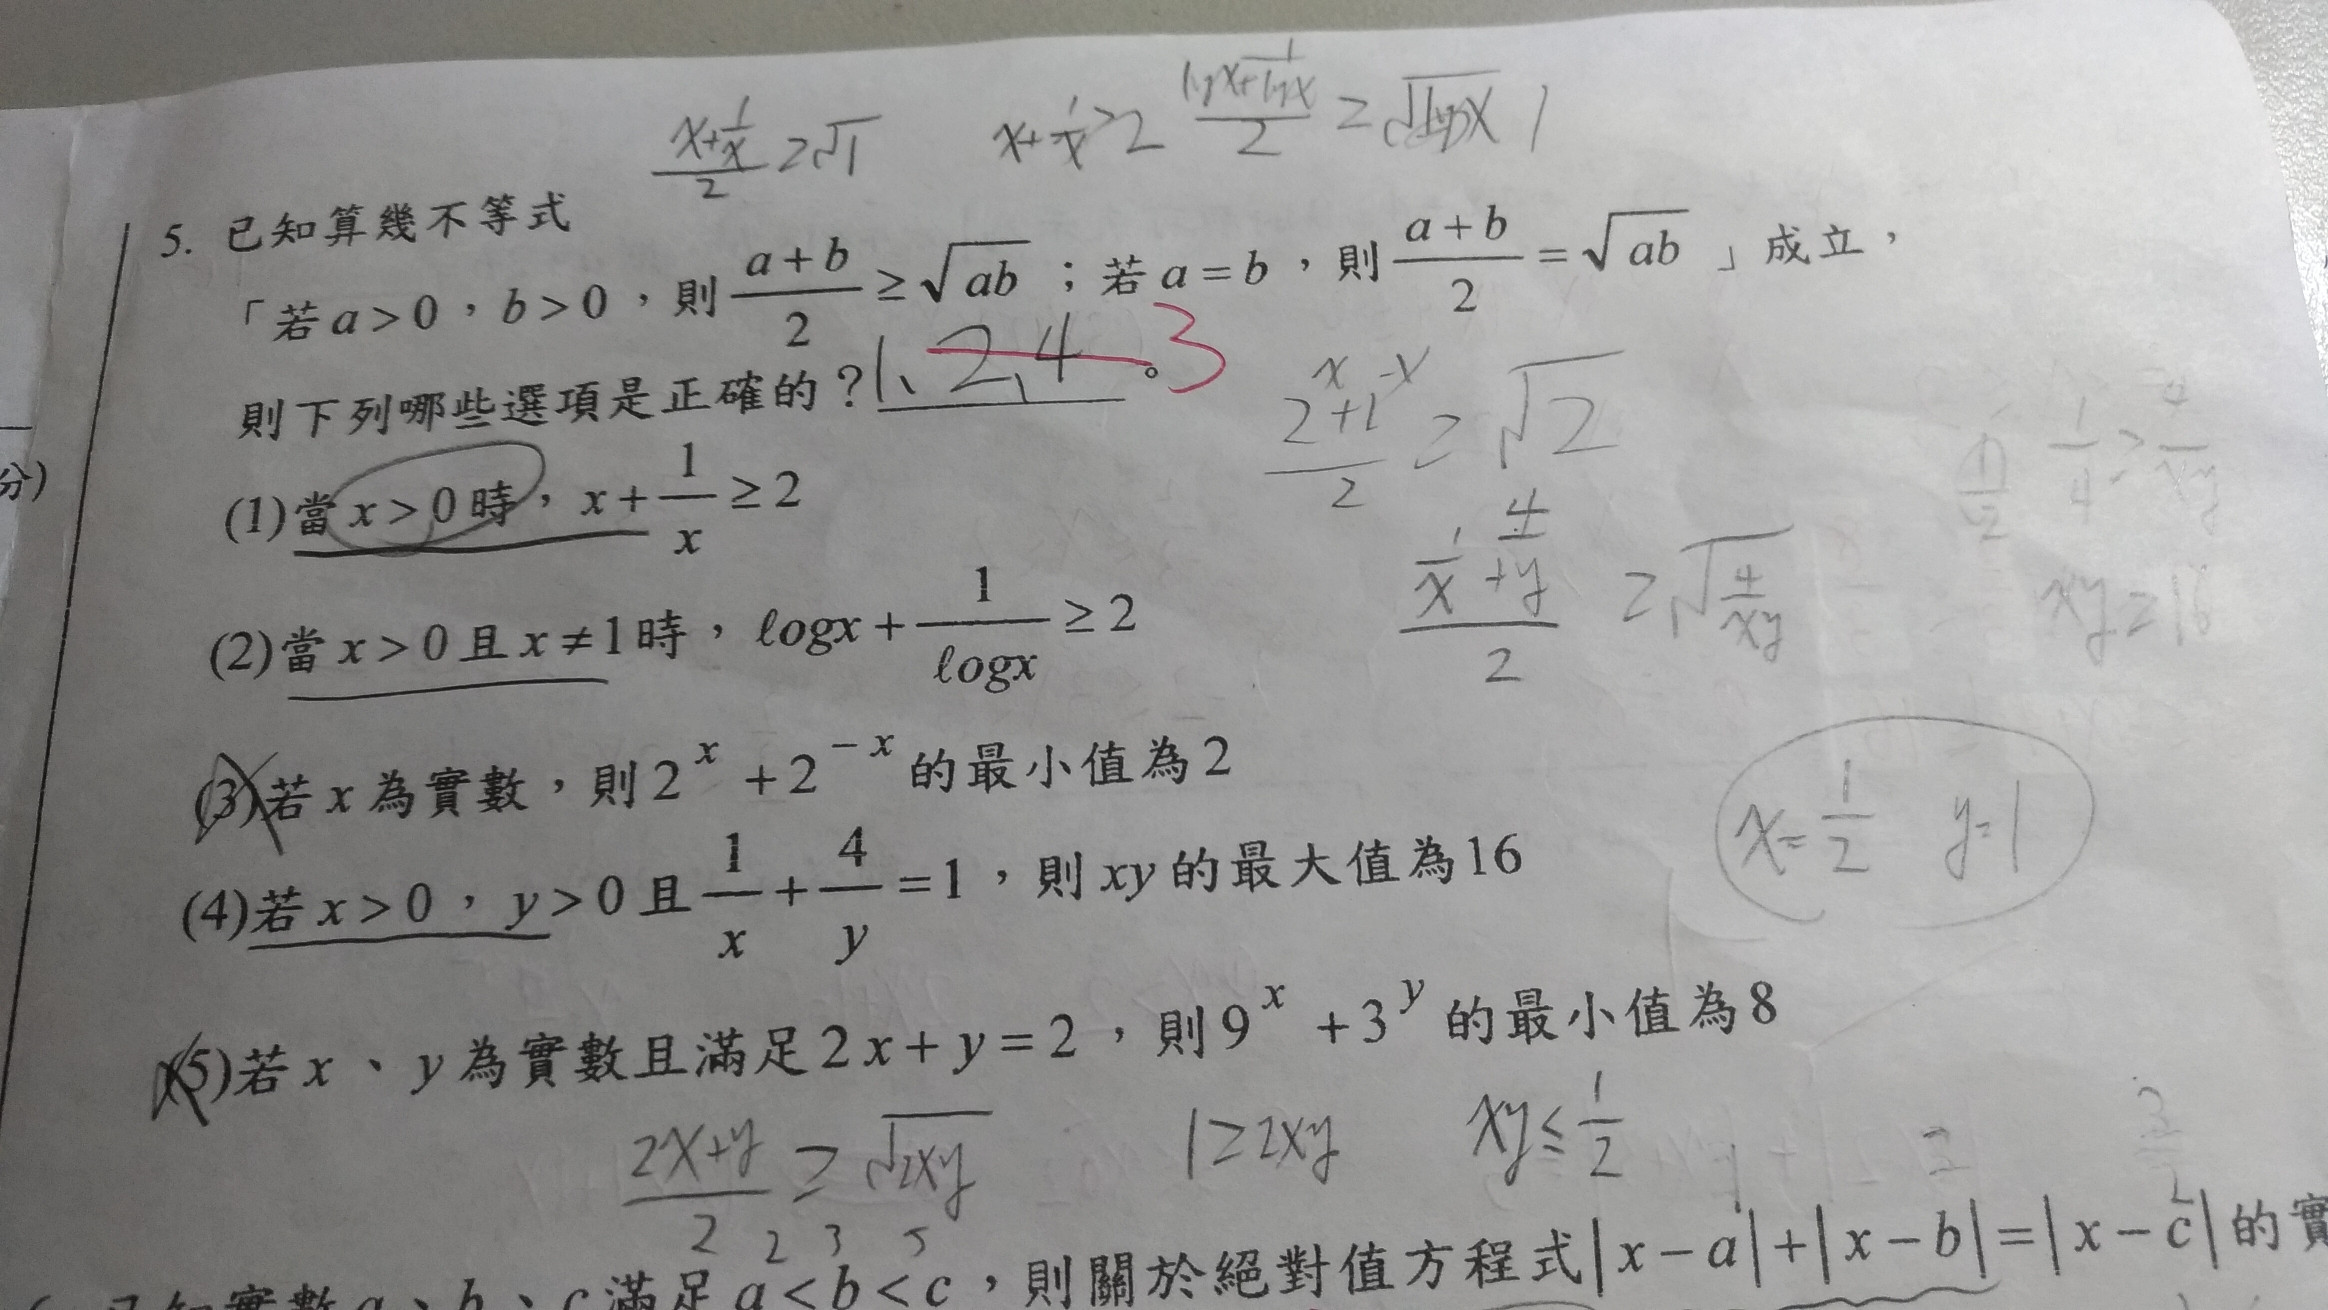 x+1/x / 2 ≥ √1   x+1/x ≥ 2   logx+1/logx / 2 ≥
5. 已知算幾不等式
「若a>0,b>0,則 (a+b)/2 ≥ √ab ;若a=b,則 (a+b)/2 = √ab 」成立,
則下列哪些選項是正確的?1、2、4。3
2^x+2^-x / 2 ≥ √2
(1)當x>0時,x+1/x ≥2
1/x+4/y / 2 ≥ √4/xy
1/4 ≥ 4/xy
xy ≥ 16
(2)當x>0且x≠1時,ℓogx+1/ℓogx ≥2
(3)若x為實數,則2^x +2^-x 的最小值為2
x=1/2 y=1
(4)若x>0,y>0且1/x+4/y=1,則xy的最大值為16
(5)若x、y為實數且滿足2x+y=2,則9^x +3^y 的最小值為8
2x+y / 2 ≥ √2xy   1≥2xy   xy≤1/2
2 3 5
已知實數a、b、c滿足a<b<c,則關於絕對值方程式|x-a|+|x-b|=|x-c|的實
分)